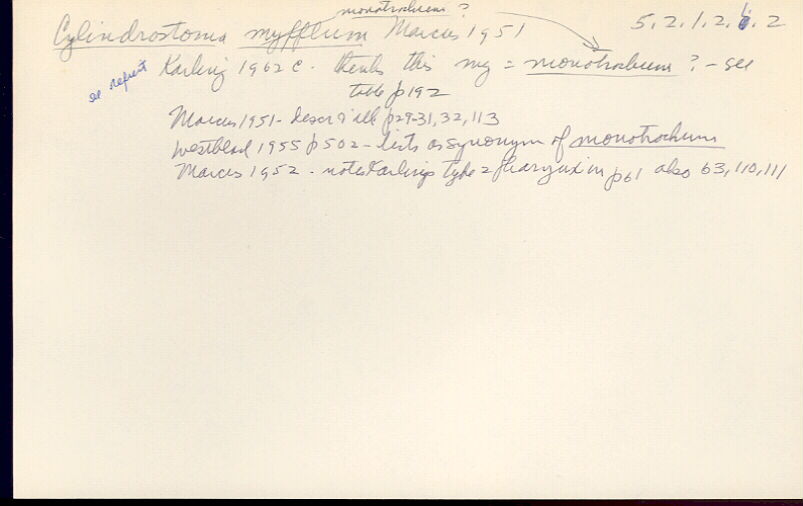 monotrochum ?
Cylindrostoma myfflum Marcus 1951 5.2.1.2.6.2
see reprint Karling 1962c - thinks this my = monotrochum ? - see
table p192
Marcus 1951 - descr & ill p29-31, 32, 113
Westblad 1955 p502 - lists as synonym of monotrochum
Marcus 1952 - notes Karlings type 2 pharynx in p61 also 63, 110, 111